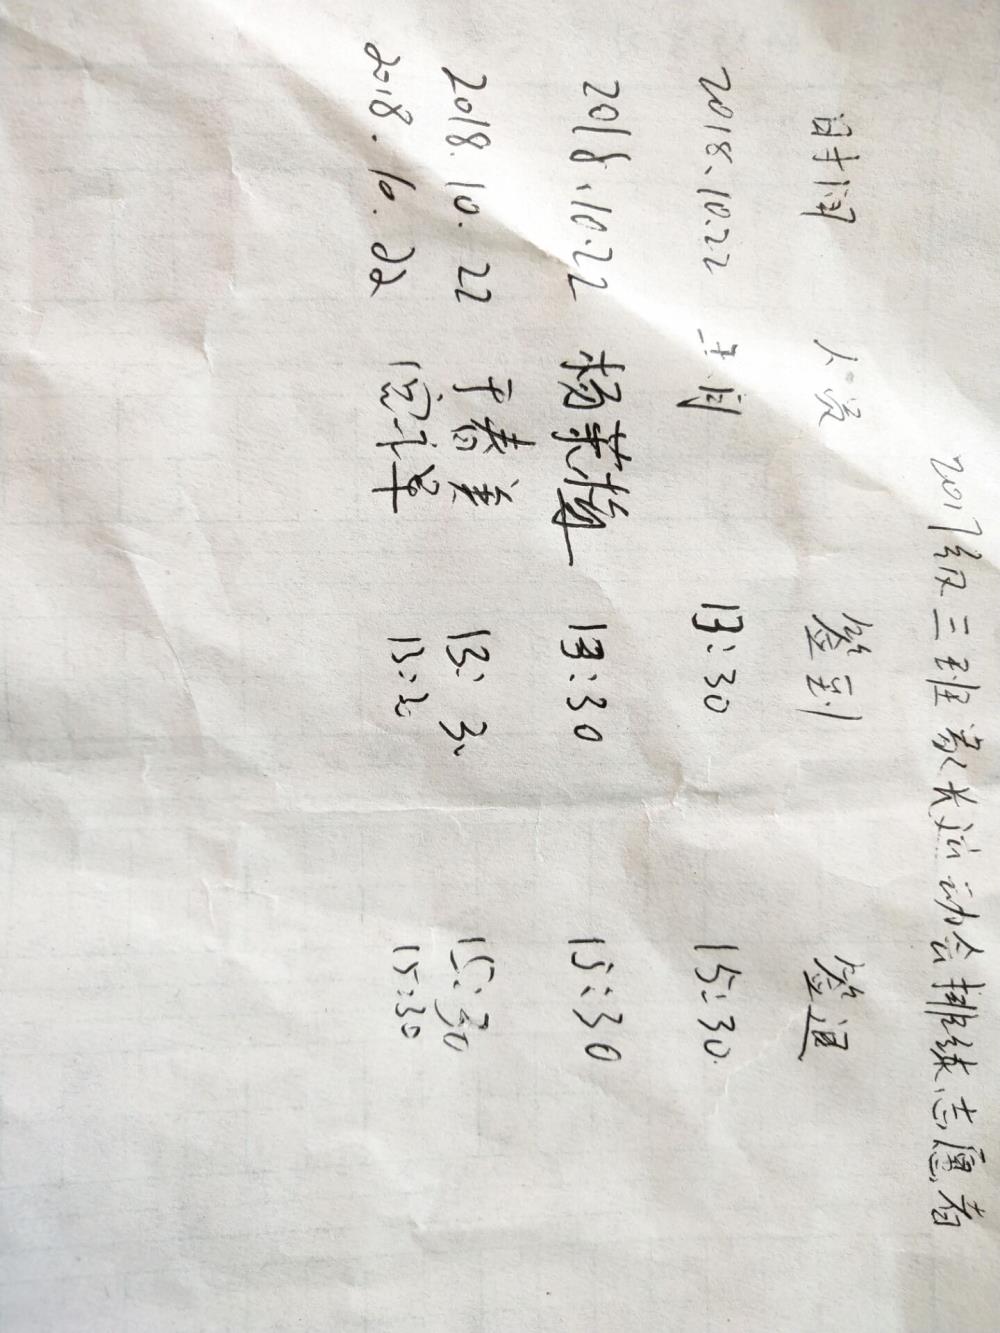 2017级三班家长运动会排练志愿者
时间 人员 签到 签退
2018.10.22 13:30 15:30
2018.10.22 杨荣梅 13:30 15:30
2018.10.22 于春美 13:30 15:30
2018.10.22 13:30 15:30